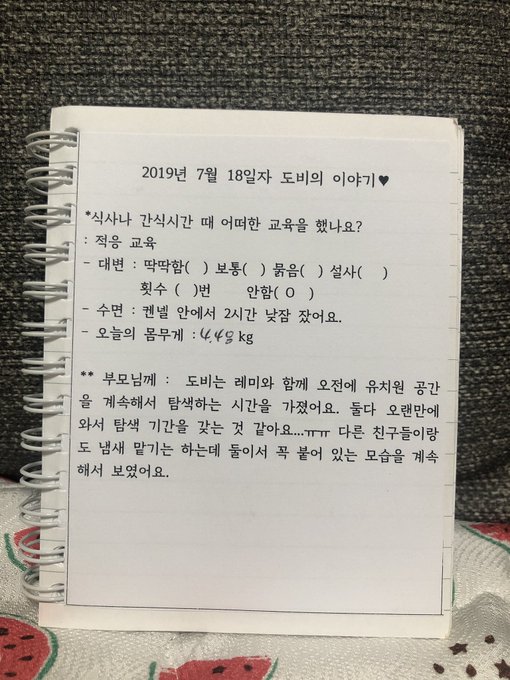 2019년 7월 18일자 도비의 이야기♥
*식사나 간식시간 때 어떠한 교육을 했나요?
: 적응 교육
- 대변 : 딱딱함( ) 보통( ) 묽음( ) 설사( )
횟수 ( )번 안함( O )
- 수면 : 켄넬 안에서 2시간 낮잠 잤어요.
- 오늘의 몸무게 : 4.48 kg
** 부모님께 : 도비는 레미와 함께 오전에 유치원 공간
을 계속해서 탐색하는 시간을 가졌어요. 둘다 오랜만에
와서 탐색 기간을 갖는 것 같아요...ㅠㅠ 다른 친구들이랑
도 냄새 맡기는 하는데 둘이서 꼭 붙어 있는 모습을 계속
해서 보였어요.